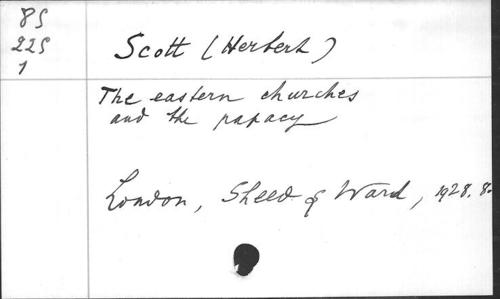 85
225
1
Scott (Herbert)
The eastern churches
and the papacy
London, Sheed & Ward, 1928. 8°